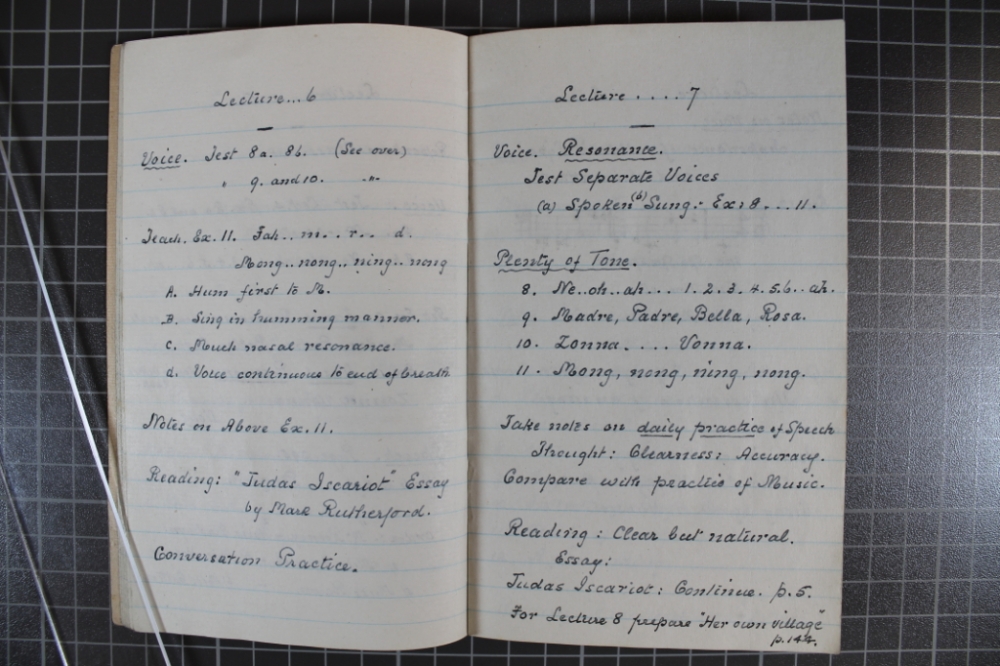 Lecture...6
Voice. Test 8a. 8b. (See over)
" 9. and 10. -"-
Teach. Ex. 11. Fah.. m... r.. d.
Mong.. nong.. ning.. nong
A. Hum first to M.
B. Sing in humming manner.
C. Much nasal resonance.
d. Voice continuous to end of breath
Notes on Above Ex. 11.
Reading: "Judas Iscariot" Essay
by Mark Rutherford.
Conversation Practice.
Lecture .... 7
Voice. Resonance.
Test Separate Voices
(a) Spoken (b) Sung:- Ex: 8 ... 11.
Plenty of Tone.
8. Ne..oh..ah... 1. 2. 3. 4. 5. 6.. ah.
9. Madre, Padre, Bella, Rosa.
10. Zonna .... Vonna.
11. Mong, nong, ning, nong.
Take notes on daily practice of Speech
Thought: Clearness: Accuracy.
Compare with practice of Music.
Reading: Clear but natural.
Essay:
Judas Iscariot: Continue. p.5.
For Lecture 8 prepare "Her own village"